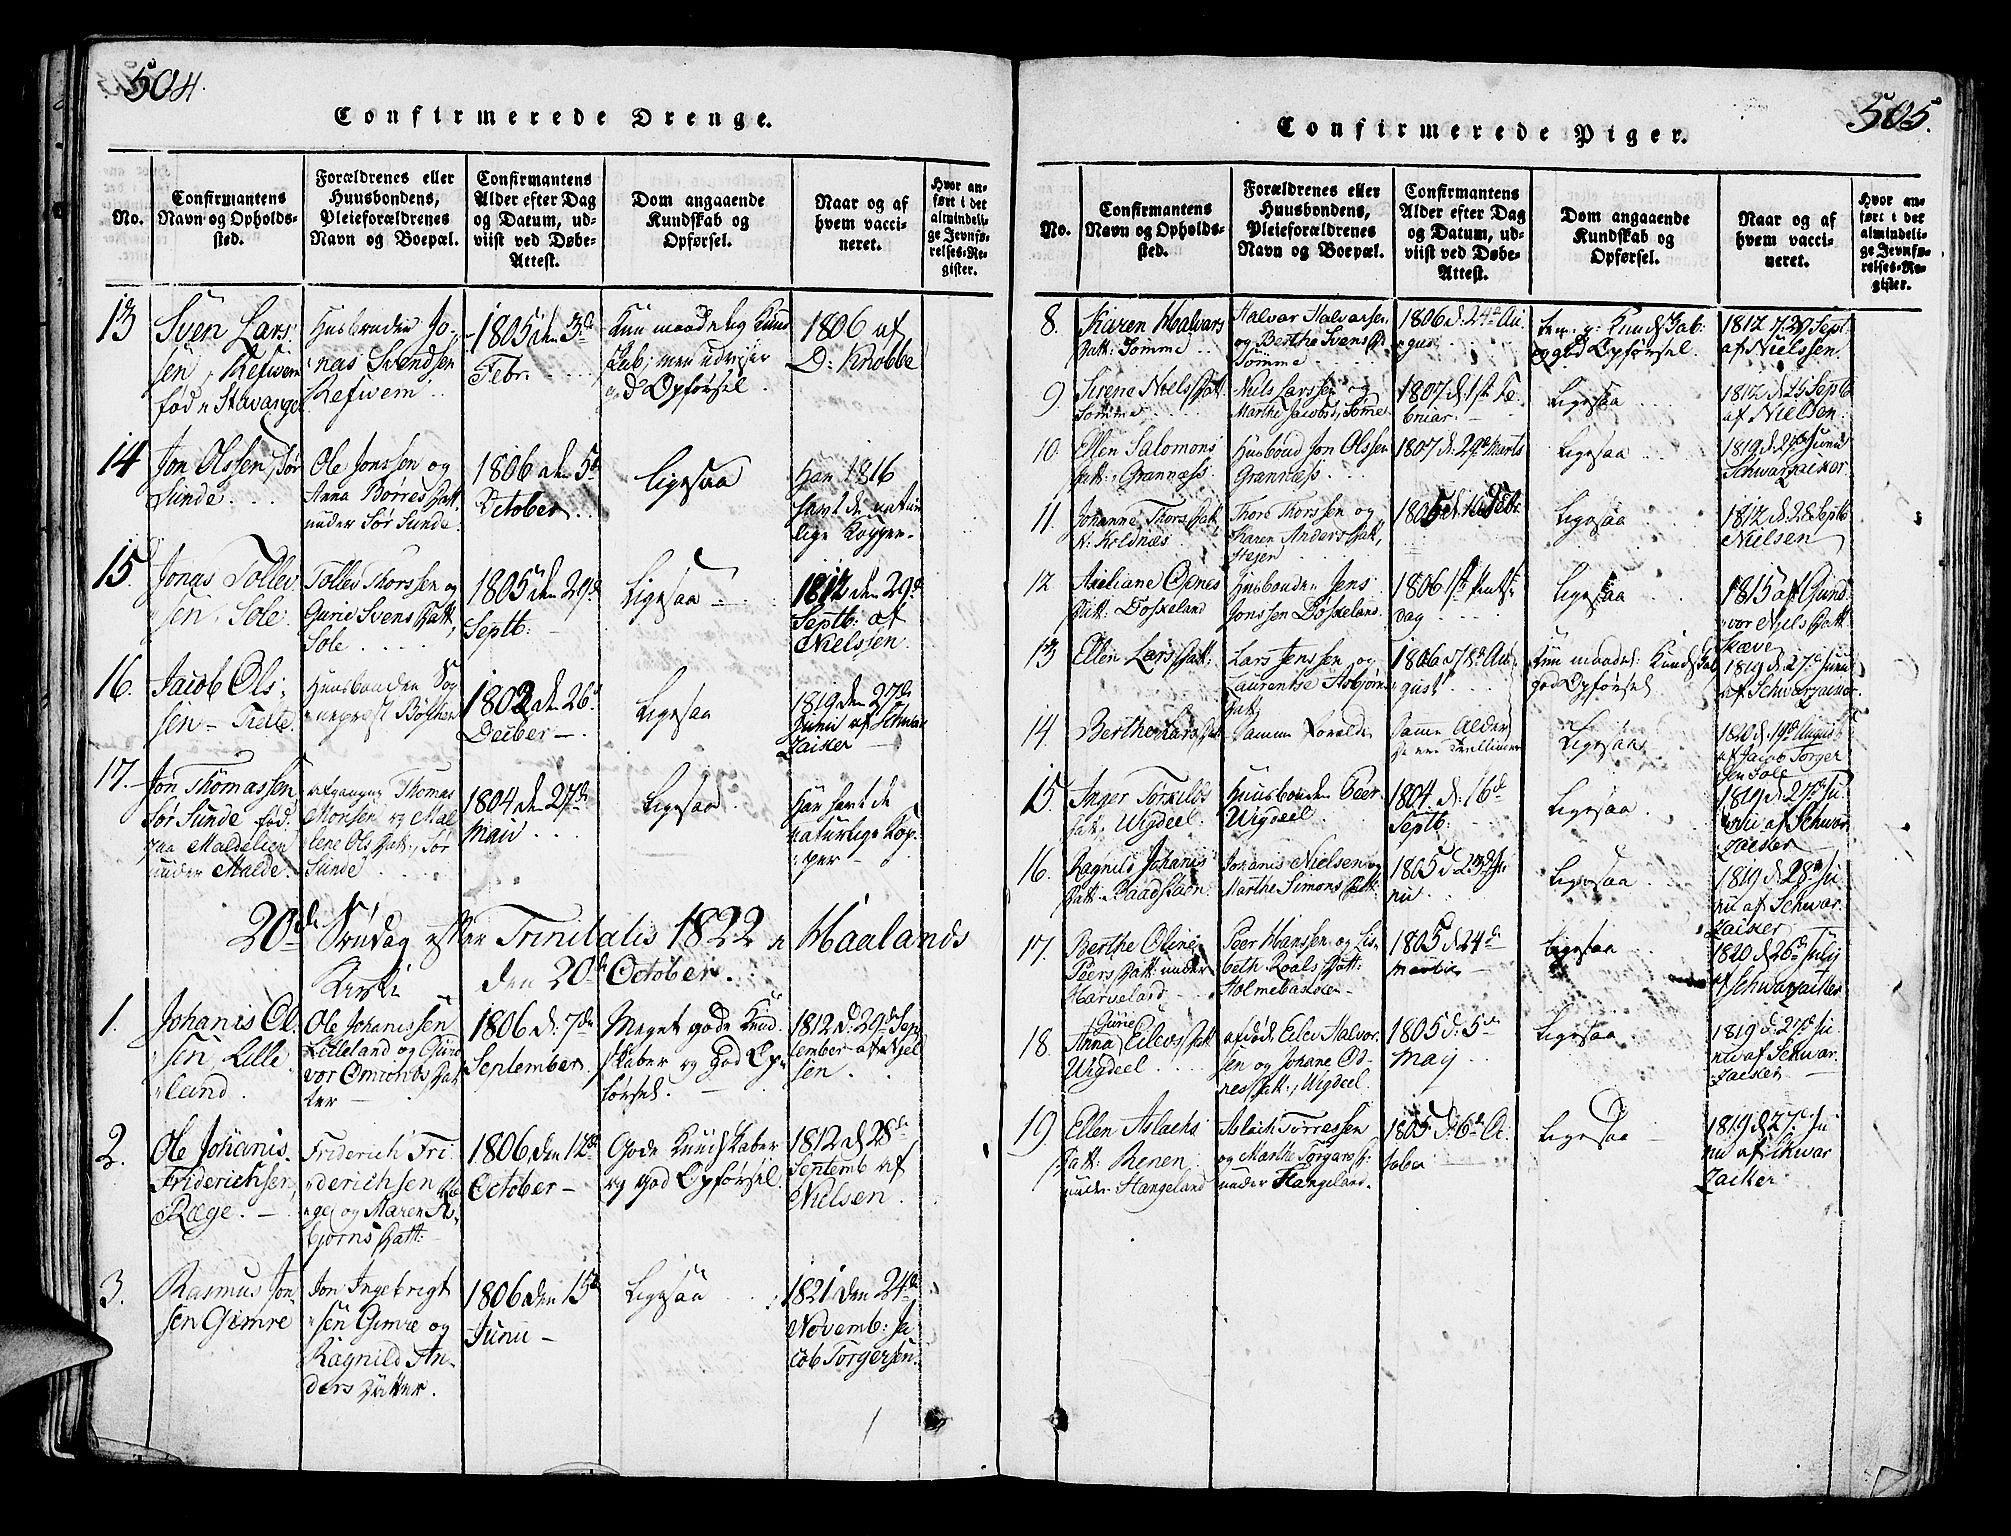 504.
Confirmerede Drenge.
No.
Confirmantens
Navn og Opholds-
sted.
Forældrenes eller
Huusbondens,
Pleieforældrenes
Navn og Boepæl.
Confirmantens
Alder efter Dag
og Datum, ud-
viist ved Døbe-
Attest.
Dom angaaende
Kundskab og
Opførsel.
Naar og af
hvem vacci-
neret.
Hvor an-
ført i det
almindeli-
ge Jevnfø-
relses-Re-
gister.
13
Sven Lars
sen, Refwem
fød i Stavanger
Huusbonden Jo-
nas Svendsen
Refwem
1805 den 3d
Febr.
Kun maadelig Kund
skab; men udviser
god Opførsel
1806 af
D: Knobbe
14
Jon Olssen, Sør
Sunde
Ole Jonssen og
Anna Børres Datt
under Sør Sunde
1806 den 5d
October
Ligesaa
Har 1816
havt de natur
lige Kopper
15.
Jonas Tollev
sen, Sole
Tollev Thorssen og
Gurie Svens Datt,
Sole
1805 den 29d
Septb:
Ligesaa
1812 den 29d
Septb: af
Nielssen
16.
Jacob Ols
sen
Huusbonden Sog
nepræst
1802 den 26d
Decber
Ligesaa
1819 den 27de
Junii af Schwar
zacker
17.
Jon Thomassen
Sør Sunde fød
paa Maldelien
under Malde
afgangne Thomas
Monsen og Mal
lene Ols Datt, Sør
Sunde
1804 den 27de
Maii
Ligesaa
Har havt de
naturlige Kop
per
20de Søndag efter Trinitatis 1822 i Haalands
Kirke den 20de October.
1.
Johanis Ol
sen Lille
land.
Ole Johanissen
Lilleland og Gun
vor Omunds Dat
ter
1806 d: 7de
September
Meget gode Kund
skaber og god Op
førsel.
1812 d: 29de Sep
tember af Niel
sen
2.
Ole Johanis
Friderichsen,
Ræge.
Friderich Fri
derichsen Ræ
ge og Maren As
bjørns Datt:
1806, den 12de
October
Gode Kundskaber
og god Opførsel.
1812 d 28de
Septemb af
Nielsen.
3.
Rasmus Jon
sen Gimre
Jon Ingebrigt
sen Gimre og
Ragnild An
ders Datter.
1806 den 15de
Junii
Ligesaa
1821 den 24de
Novemb: Ja
cob Torgersen.
505.
Confirmerede Piger.
No.
Confirmantens
Navn og Opholds-
sted.
Forældrenes eller
Huusbondens,
Pleieforældrenes
Navn og Boepæl.
Confirmantens
Alder efter Dag
og Datum, ud-
viist ved Døbe-
Attest.
Dom angaaende
Kundskab og
Opførsel.
Naar og af
hvem vacci-
neret.
Hvor an-
ført i det
almindeli-
ge Jevnfø-
relses-Re-
gister.
8.
Karen Halvars
Datt: Sømme
Halvar Halvarsen
og Berthe Svens D
Sømme
1806 d. 24d Au
gust
Tem. g: Kundskab
og god Opførsel.
1812 29 Sept.
af Nielssen
9.
Sirene Niels Datt.
Sømme
Niels Larssen og
Marthe Jacobs, Sømme
1807 d. 1ste Fe
bruar
Ligesaa
1812 d 29 Septb
af Nielsen
10.
Ellen Salomons
Datt: Grannæss
Husbond Jon Olssen
Grannæss
1807 d: 29de Marts
Ligesaa
1819 d. 27de Junii
Schwarzacker
11.
Johanne Thors Datt
N: Koldnæs
Thore Thorssen og
Karen Anders Datt,
1805 d. 10de Febr.
Ligesaa
1812 d. 28 Septb
Nielsen
12.
Axeliane
Datt:
Huusbonden Jens
Jonssen
1806 1ste
dag
Ligesaa
1815 af Gund
vor Niels Datt
Skæve
13
Ellen Lars Datt:
Lars Jenssen og
Laurentse Asbjørns
Datt:
1806 Au
gust
Kun maadel: Kundskab
god Opførsel
1819 d. 27de Junii
af Schwarzacker
14.
Berthe Lars Datt
Samme Forældre
Samme Alder
de ere Tvillinger
Ligesaa
1820 d. 19de August
af Jacob Torger
sen Sole
15.
Inger Torkilds
Datt, Wigdeel.
Huusbonden Peer
Wigdeel.
1804. d: 16de
Septb:
Ligesaa
1819 d: 27de Ju
nii af Schwar
zacker
16.
Ragnild Johanis
Datt.
Johanis Nielsen og
Marthe Simons Datt:
1805 d 23de Ju
nii
Ligesaa
1819 d 28de Ju
nii af Schwar
zacker
17.
Berthe Oline
Peers Datt: under
Harveland
Peer Hanssen og Lis
beth Roals Datt:
Holmebakken
1805 d 24de
Martii
Ligesaa
1820 d 26de July
af Schwarzacker
18.
Gurie
Anna Eilevs Datt
Wigdeel
afdøde Eilev Halvor
sen og Johane Od
nes Datt:, Wigdeel.
1805 d: 5te
May
Ligesaa
1819 d: 27de Ju
nii af Schwar
zacker
19.
Ellen Aslachs
Datt: Renen
under Hangeland
Aslach Torressen
og Marthe
under Hangeland.
1805 d: 6te Oc
tober
Ligesaa
1819 d 27de Ju
nii af Schwar
zacker